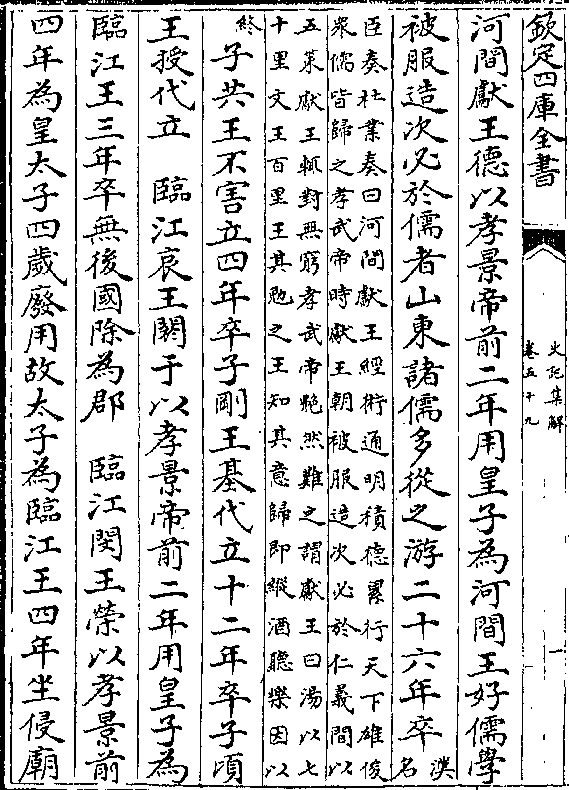 欽定四庫全書
史記集解
卷五十九
一
河間獻王德以孝景帝前二年用皇子為河間王好儒學
被服造次必於儒者山東諸儒多從之游二十六年卒
漢
名
臣奏杜業奏曰河間獻王經術通明積德累行天下雄俊
衆儒皆歸之孝武帝時獻王朝被服造次必於仁義間以
五策獻王輒對無窮孝武帝艴然難之謂獻王曰湯以七
十里文王百里王其勉之王知其意歸即縱酒聽樂因以
終
子共王不害立四年卒子剛王基代立十二年卒子頃
王授代立 臨江哀王閼于以孝景帝前二年用皇子為
臨江王三年卒無後國除為郡 臨江閔王榮以孝景前
四年為皇太子四歲廢用故太子為臨江王四年坐侵廟